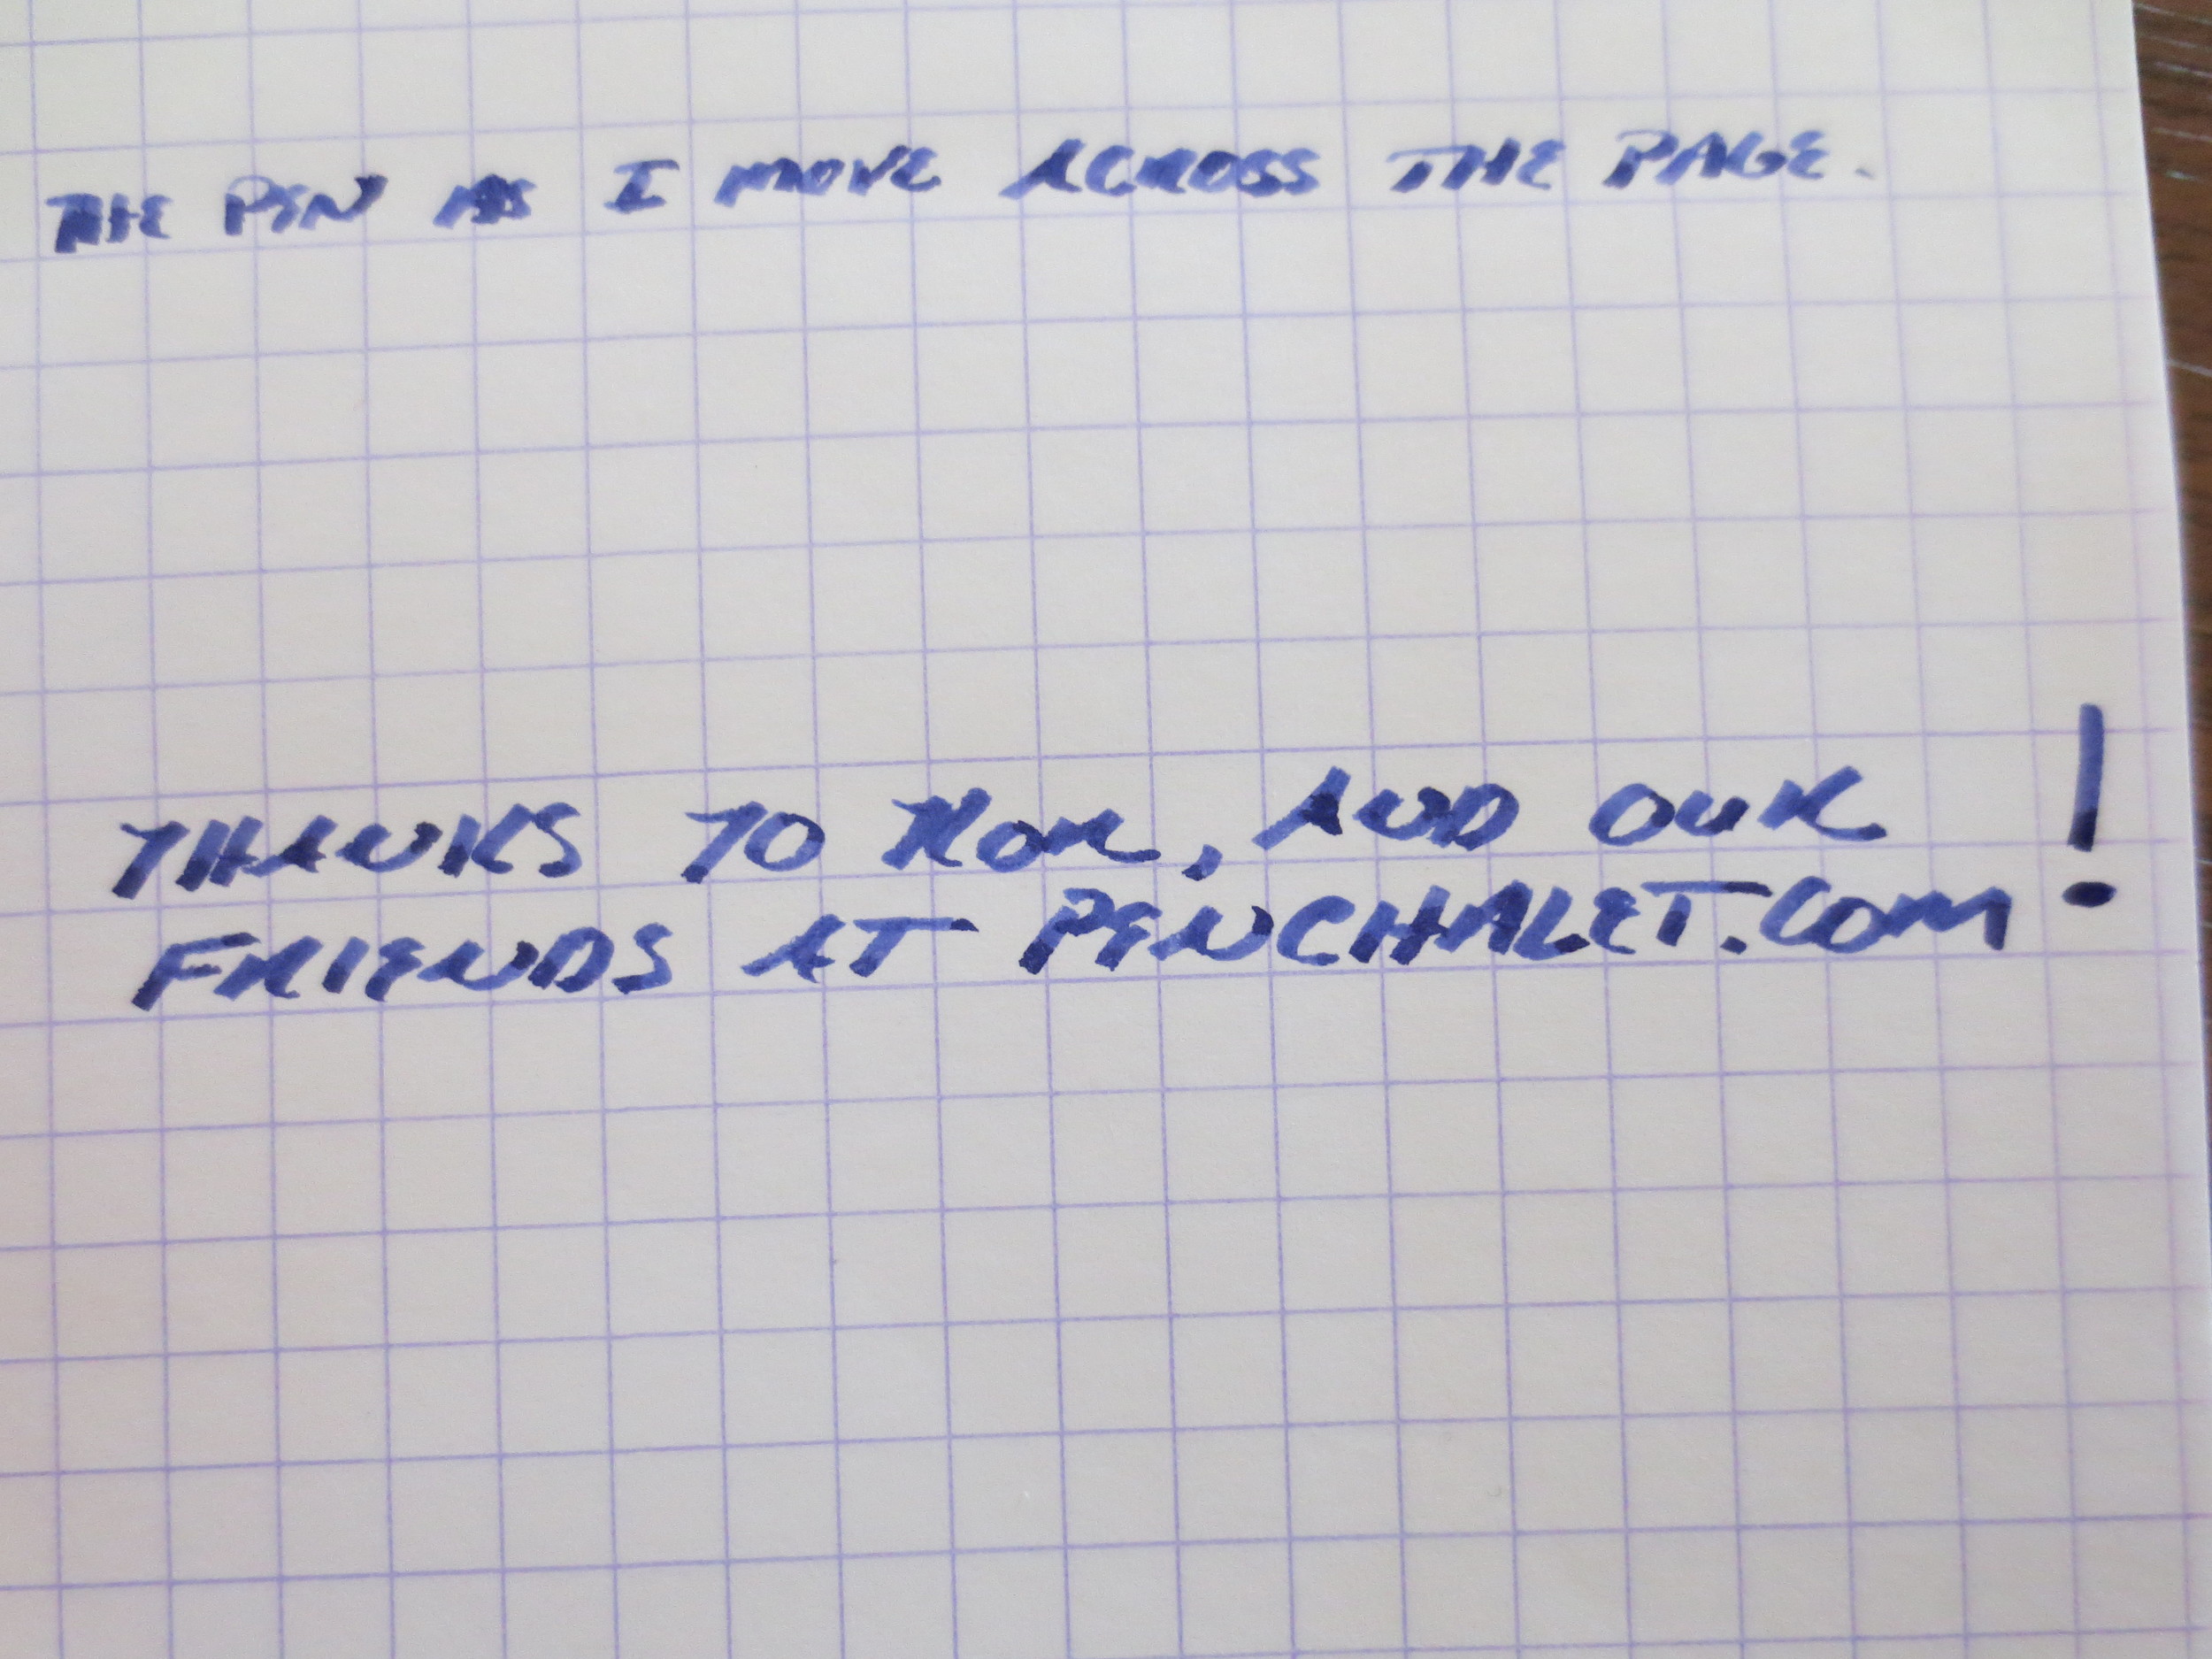 THE PEN AS I MOVE ACROSS THE PAGE.
THANKS TO RON, AND OUR
FRIENDS AT PENCHALET.COM!